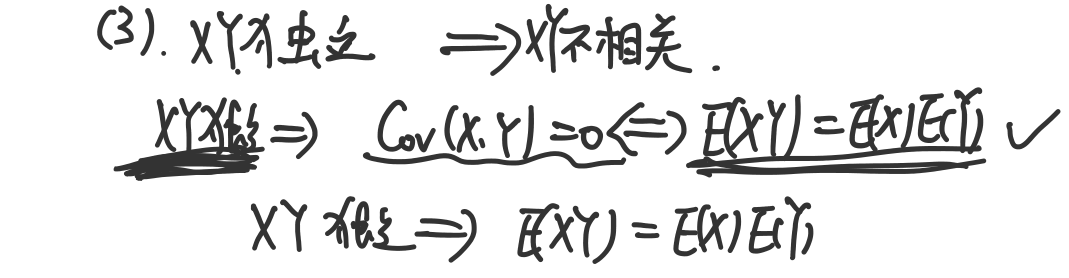 (3). XY独立 ⟹ XY不相关.
XY独立 ⟹ Cov(X,Y)=0 ⟺ E(XY)=E(X)E(Y) ✓
XY独立 ⟹ E(XY)=E(X)E(Y)